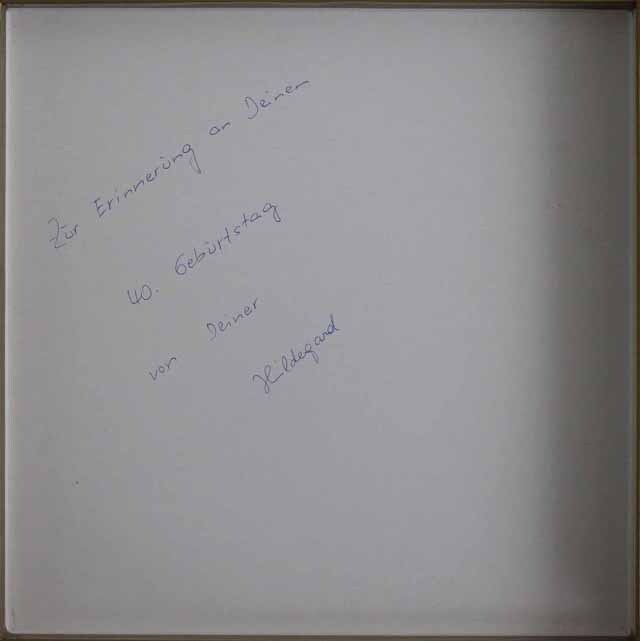 Zur Erinnerung an Deinen
40. Geburtstag
von Deiner
Hildegard